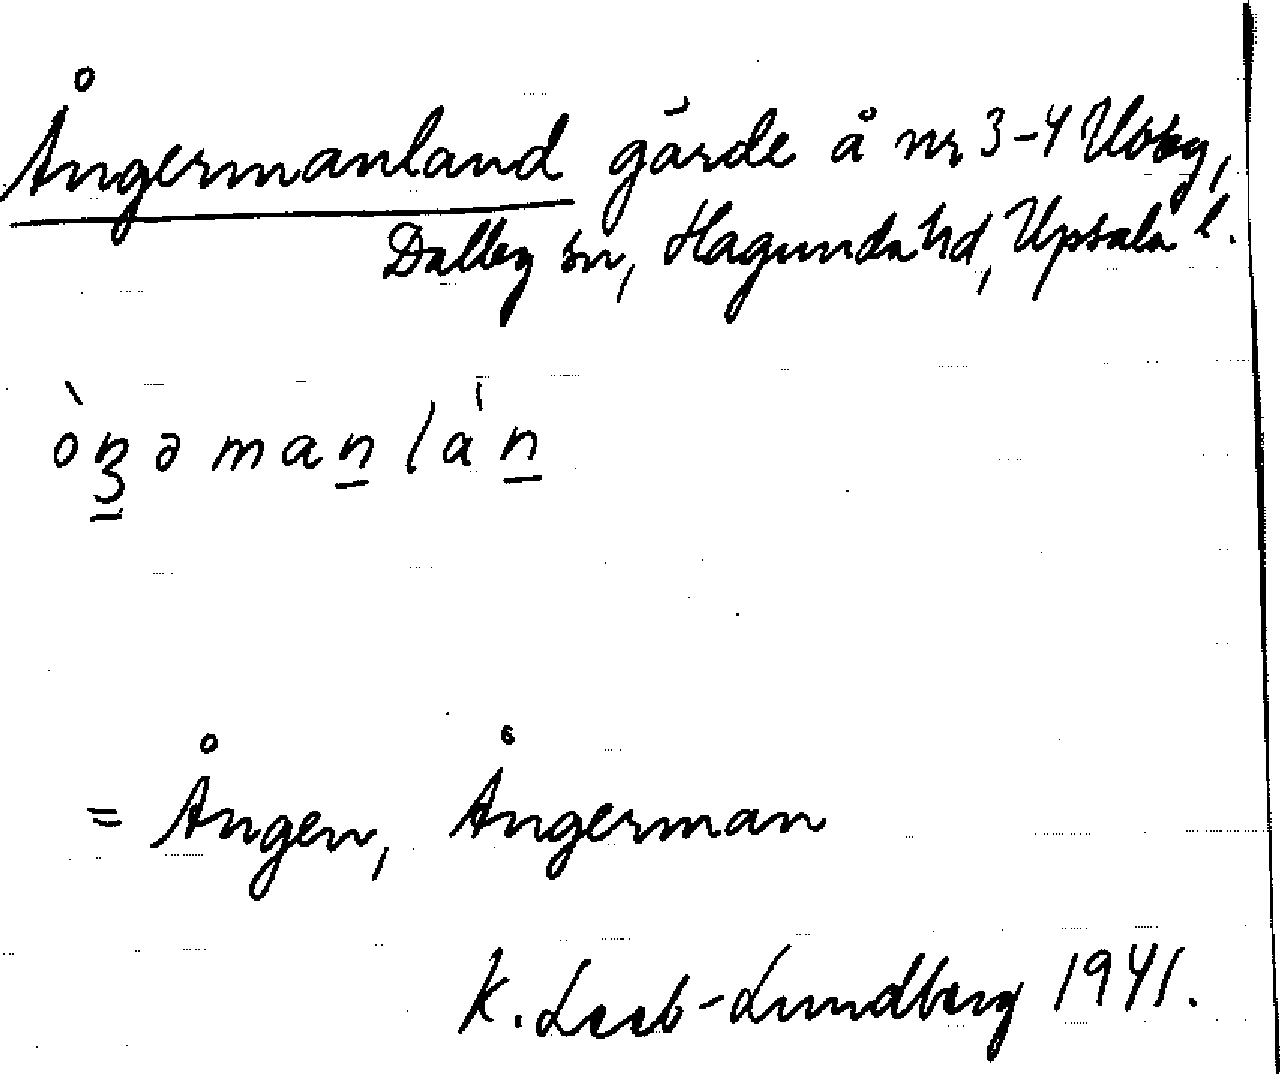 Ångermanland gärde å nr 3-4 Ubby,
Dalby sn, Hagunda hd, Upsala l.
= Ången, Ångerman
K. Leeb-Lundberg 1941.